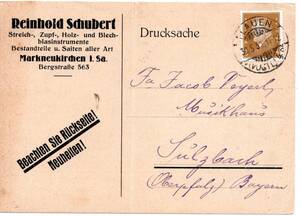 Reinhold Schubert
Streich-, Zupf-, Holz- und Blech-
blasinstrumente
Bestandteile u. Saiten aller Art
Markneukirchen i. Sa.
Bergstraße 563
Drucksache
PLAUEN
(VOGTL)
Beachten Sie Rückseite!
Neuheiten!
Fa Jacob
Musikhaus
Sulzbach
(Oberpfalz) Bayern